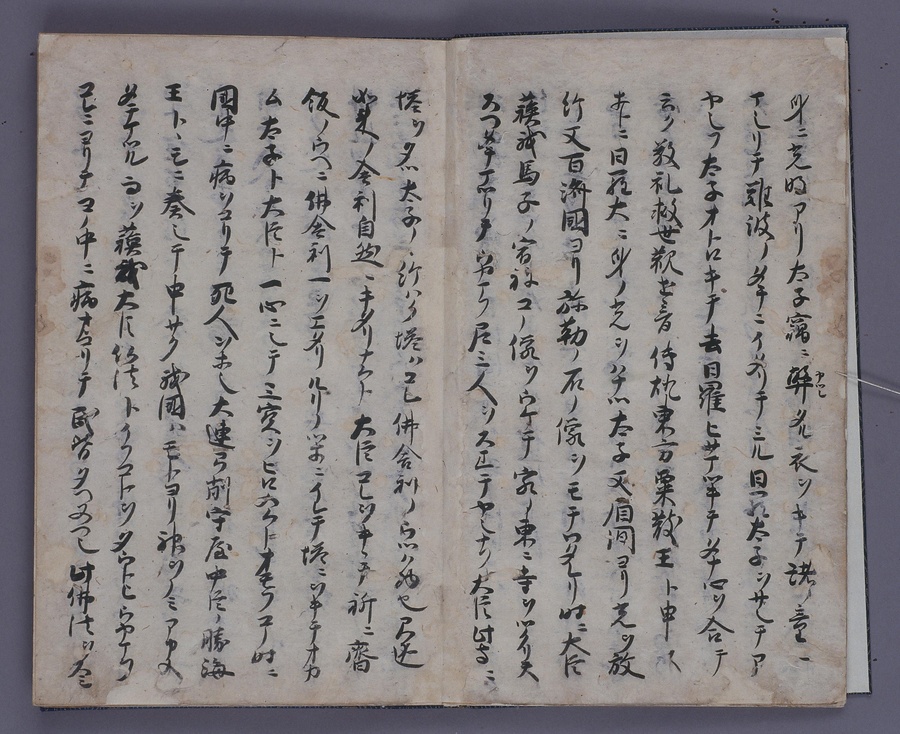 身ニ光明アリ太子竊ニ弊タル衣ヲキテ諸ノ童ニ
マシリテ難波ノ館ニイタリテミル日羅太子ヲサシテア
ヤシフ太子オトロキテ去日羅ヒサマツキテタナ心ヲ合テ
云ク敬礼救世観世音伝灯東方粟散王ト申
ホトニ日羅大ニ身ノ光ヲハナツ太子又眉間ヨリ光ヲ放
行又百済国ヨリ弥勒ノ石ノ像ヲモテワタレリ時ニ大臣
蘇我馬子ノ宿祢コノ像ヲウケテ家ノ東ニ寺ヲツクリ
アカメ 尼三人ヲスエテヤシナフ大臣此寺ニ
塔ヲタツ太子ノ給ハク塔ハコレ仏舎利ノウツハ也尺迦
如来ノ舎利自然ニキタリナムト大臣コレヲキヽテ祈ニ斎
飯ノウヘニ仏舎利一ツエタリルリノツホニイレテ塔ニヲキテオカ
ム太子ト大臣ト一心ニシテ三宝ヲヒロム 時ニ
国中ニ病ヲコリテ死人ヲホシ大連弓削守屋中臣ノ勝海
王トヽモニ奏シテ申サク我国ハモトヨリ神ヲノミアカメ
タテマツル 蘇我大臣仏法トイフコトヲ ヲコナフ
コレニヨリテヨノ中ニ病オコリテ民皆タヘヌヘシ此仏法ヲ